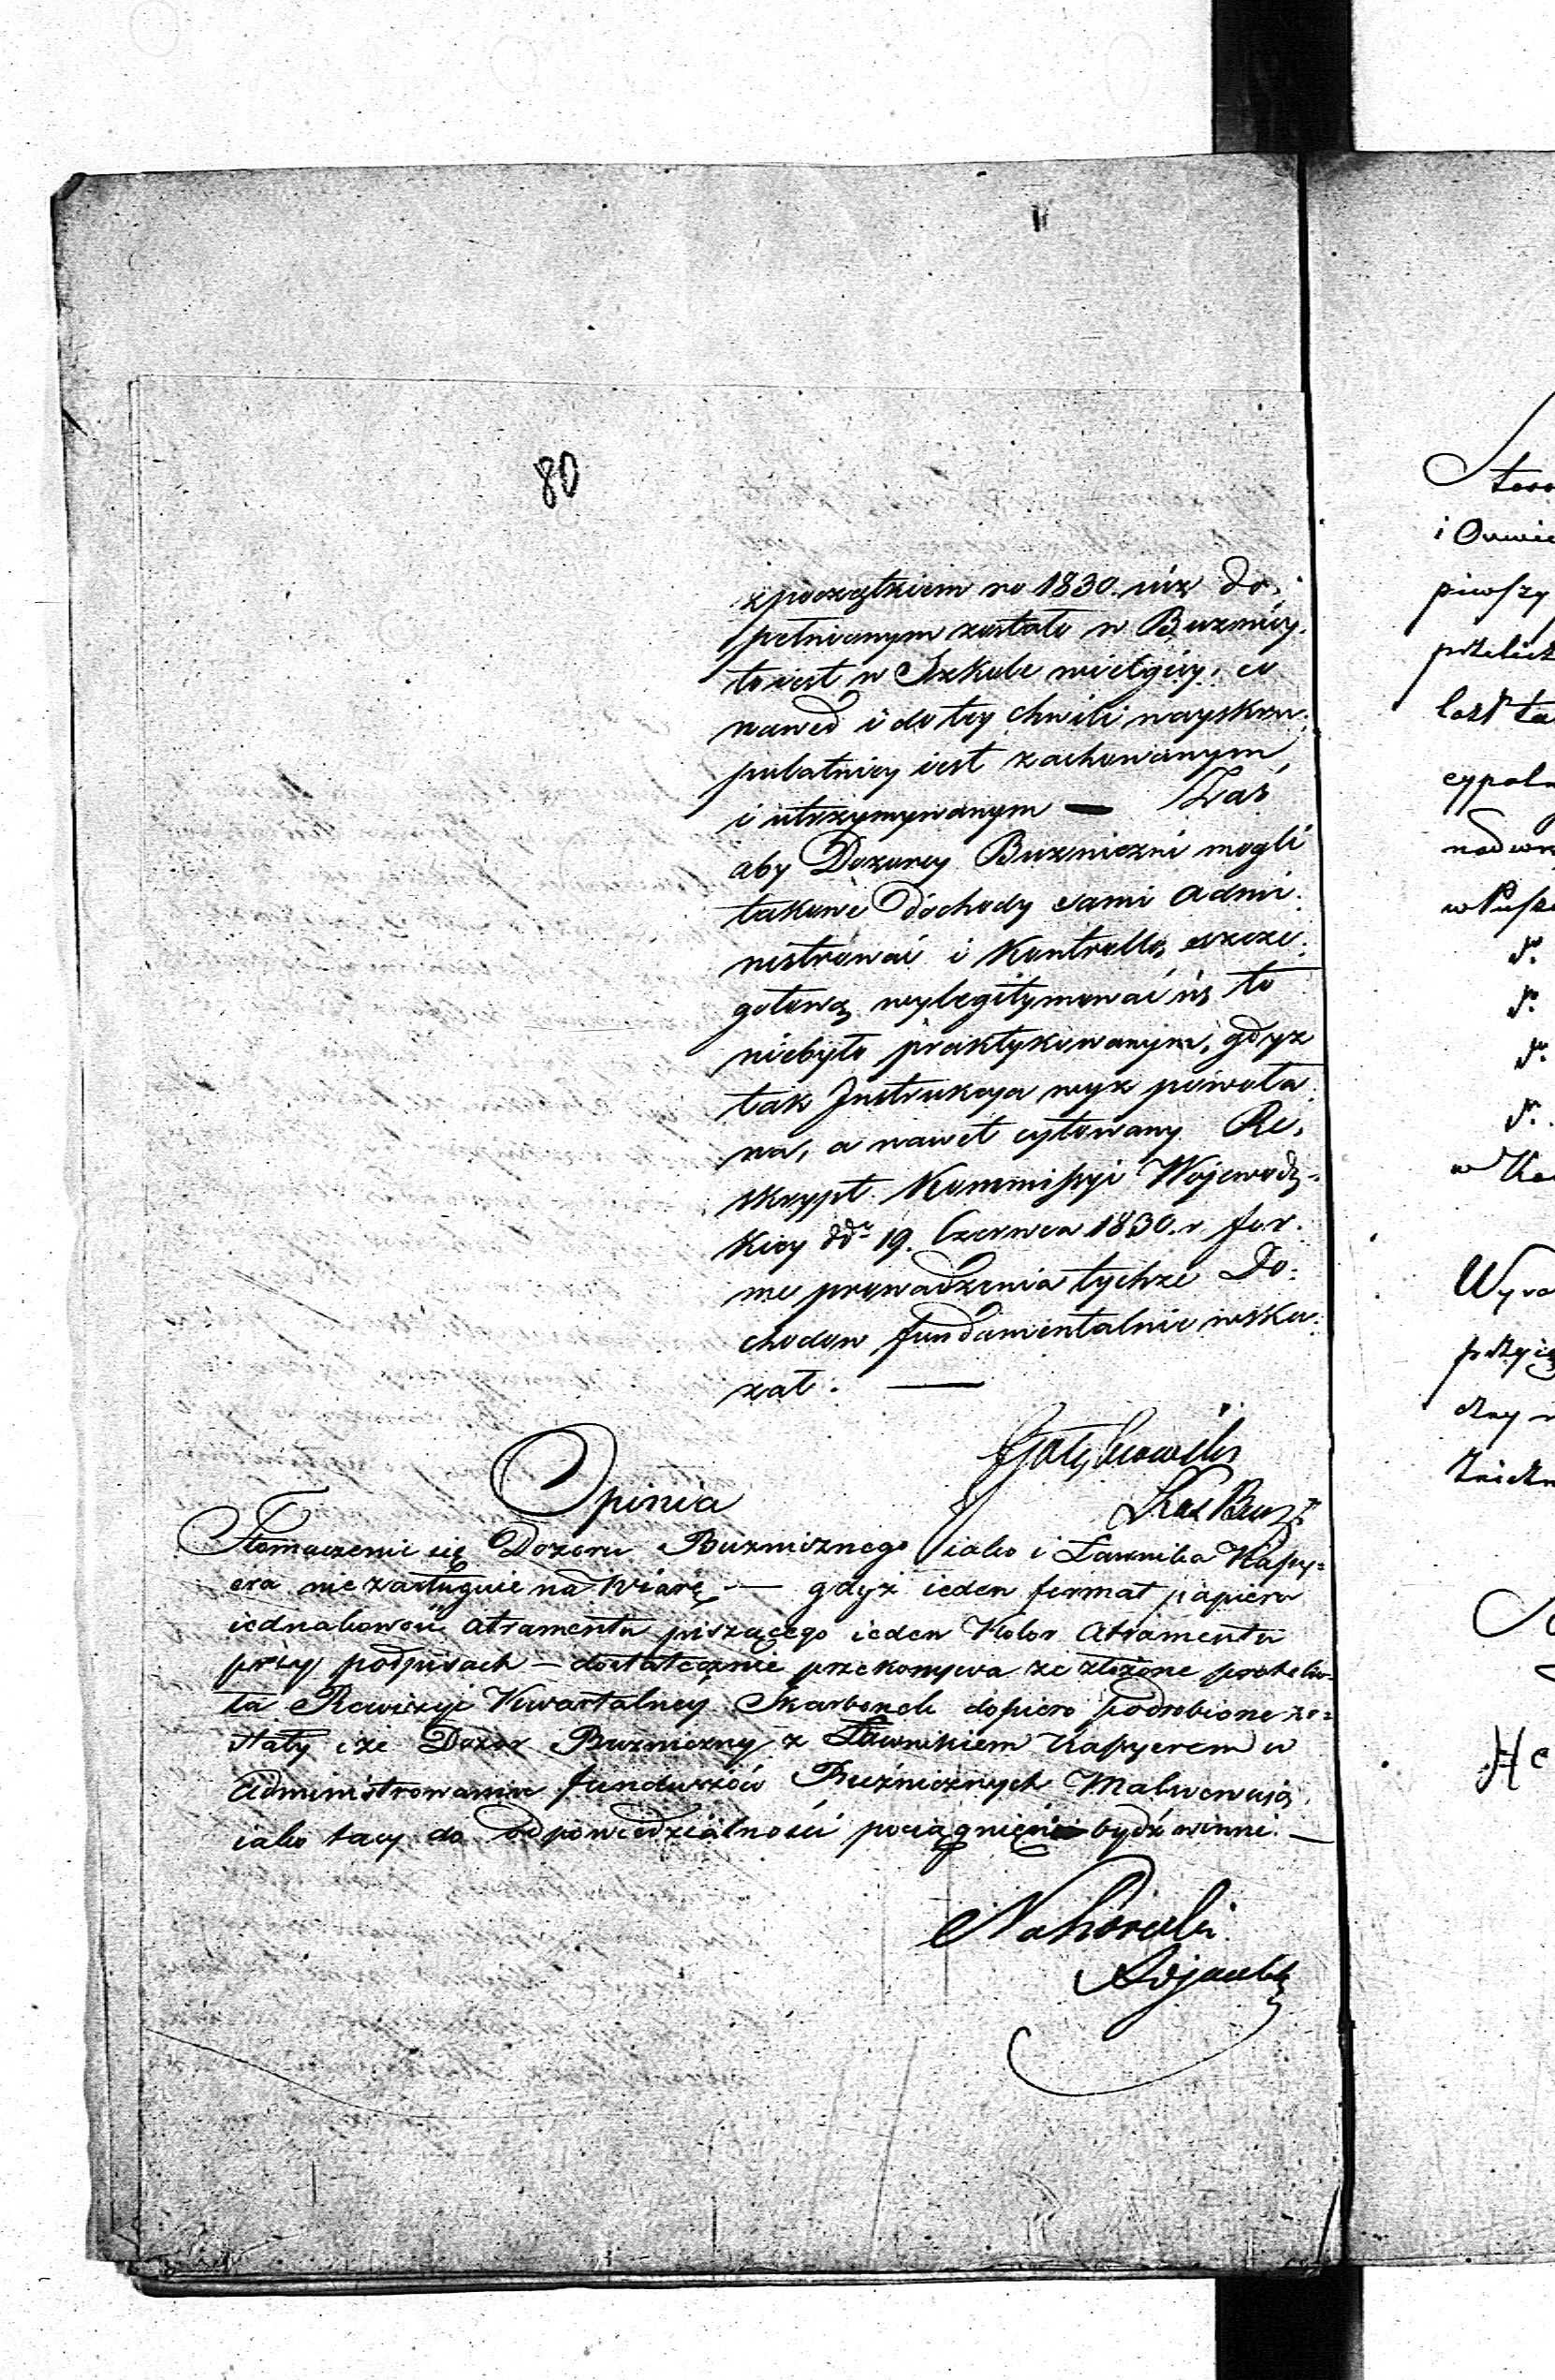 80
z początkiem ro 1830. iuż do.
pełnionym zostało w Buznicy.
to iest w Szkole wielgiey, co
nawed i do tey chwili nayskru.
pulatniey iest zachowanym
i utrzymywanym — Zaś
aby Dozorcy Buzniczni mogli
takowe dochody sami admi.
nistrować i Kontrollą szcze.
gołową wylegitymować się to
niebyło praktykowanym, gdyz
tak Instrukcya wyz powoła
na, a nawet cytowany Re,
skrypt Kommissyi Wojewodz.
kiey dd. 19. Czerwca 1830. r. for.
me prowadzenia tychze Do.
chodow fundamentalnie wska.
zał. —
Opinia
Tłomaczenie się Dozoru Buznicznego iako i Ławnika Kassy=
era nie zasługuie na Wiarę — gdyż ieden format papieru
iednakowość atramentu piszącego ieden Kolor atramentu
przy podpisach — dostatecznie przekonywa ze złożone protoku-
ła Rewizyi Kwartalney Skarbonek dopiero podrobione zo=
stały i że Dozor Buzniczny z Ławnikiem Kassyerem w
Administrowaniu funduszów Buźnicznych Malwersują
iako tacy do odpowiedzialności pociągnięci bydź winni. —
Sto
i
piwszy
w